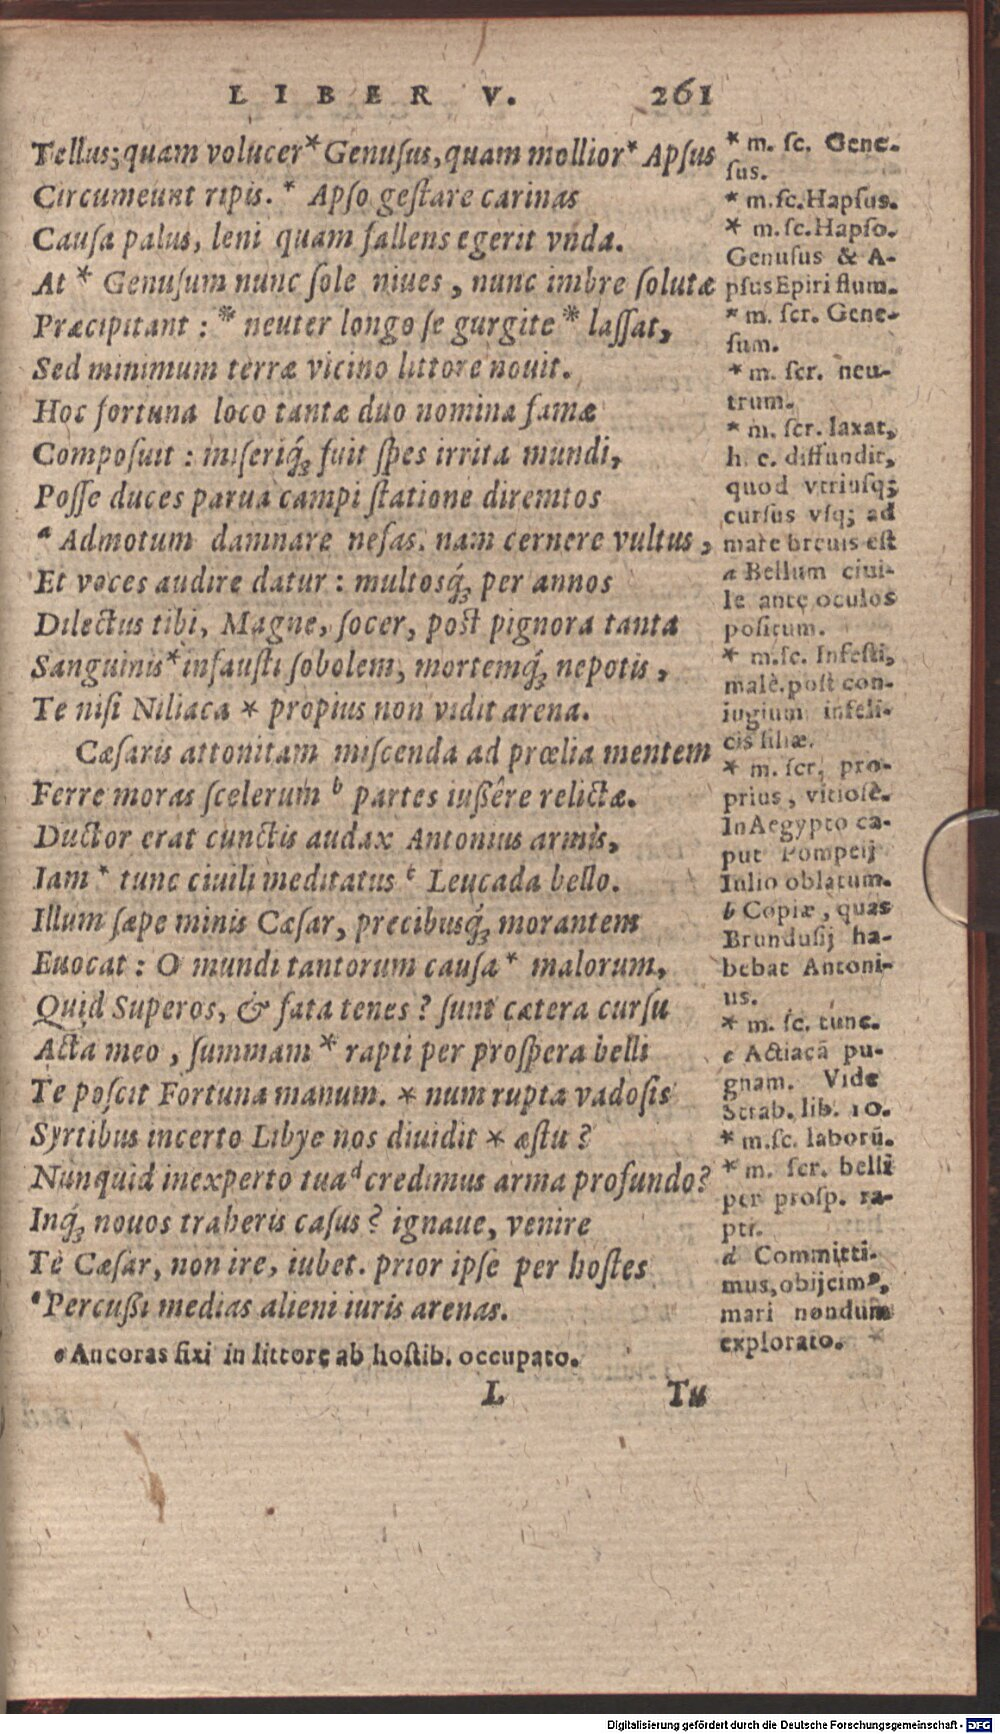 LIBER V. 261
Tellus; quam volucer* Genuſus, quam mollior* Apſus
Circumeunt ripis. * Apſo geſtare carinas
Cauſa palus, leni quam fallens egerit vnda.
At * Genuſum nunc ſole niues, nunc imbre ſolutæ
Præcipitant : * neuter longo ſe gurgite * laſſat,
Sed minimum terræ vicino littore nouit.
Hoc fortuna loco tantæ duo nomina famæ
Compoſuit : miſeriq́; fuit ſpes irrita mundi,
Poſſe duces parua campi ſtatione diremtos
a Admotum damnare nefas. nam cernere vultus,
Et voces audire datur : multosq́; per annos
Dilectus tibi, Magne, ſocer, poſt pignora tanta
Sanguinis* infauſti ſobolem, mortemq́; nepotis,
Te niſi Niliaca * propius non vidit arena.
Cæſaris attonitam miſcenda ad prœlia mentem
Ferre moras ſcelerum b partes iußêre relictæ.
Ductor erat cunctis audax Antonius armis,
Iam * tunc ciuili meditatus c Leucada bello.
Illum ſæpe minis Cæſar, precibusq́; morantem
Euocat : O mundi tantorum cauſa * malorum,
Quid Superos, & fata tenes? ſunt cætera curſu
Acta meo, ſummam * rapti per proſpera belli
Te poſcit Fortuna manum. * num rupta vadoſis
Syrtibus incerto Libye nos diuidit * æſtu?
Nunquid inexperto tua d credimus arma profundo?
Inq́; nouos traheris caſus? ignaue, venire
Tè Cæſar, non ire, iubet. prior ipſe per hoſtes
e Percußi medias alieni iuris arenas.
e Ancoras fixi in littore ab hoſtib. occupato.
L Tu
* m. ſc. Gene-
ſus.
* m.ſc.Hapſus.
* m.ſc.Hapſo.
Genuſus & A-
pſus Epiri flum.
* m. ſcr. Gene-
ſum.
* m. ſcr. neu-
trum.
* m. ſcr. laxat,
h. e. diffundit,
quod vtriuſq;
curſus vſq; ad
mare breuis eſt
a Bellum ciui-
le ante oculos
poſitum.
* m.ſc. Infeſti,
malè.poſt con-
iugium infeli-
cis filiæ.
* m. ſcr, pro-
prius, vitioſè.
In Aegypto ca-
put Pompeij
Iulio oblatum.
b Copiæ, quas
Brunduſij ha-
bebat Antoni-
us.
* m. ſc. tunc.
c Actiacā pu-
gnam. Vide
Strab. lib. 10.
* m.ſc. laborū.
* m. ſcr. belli
per proſp. ra-
pti.
d Committi-
mus, obijcimꝰ,
mari nondum
explorato. *
Digitalisierung gefördert durch die Deutsche Forschungsgemeinschaft - DFG